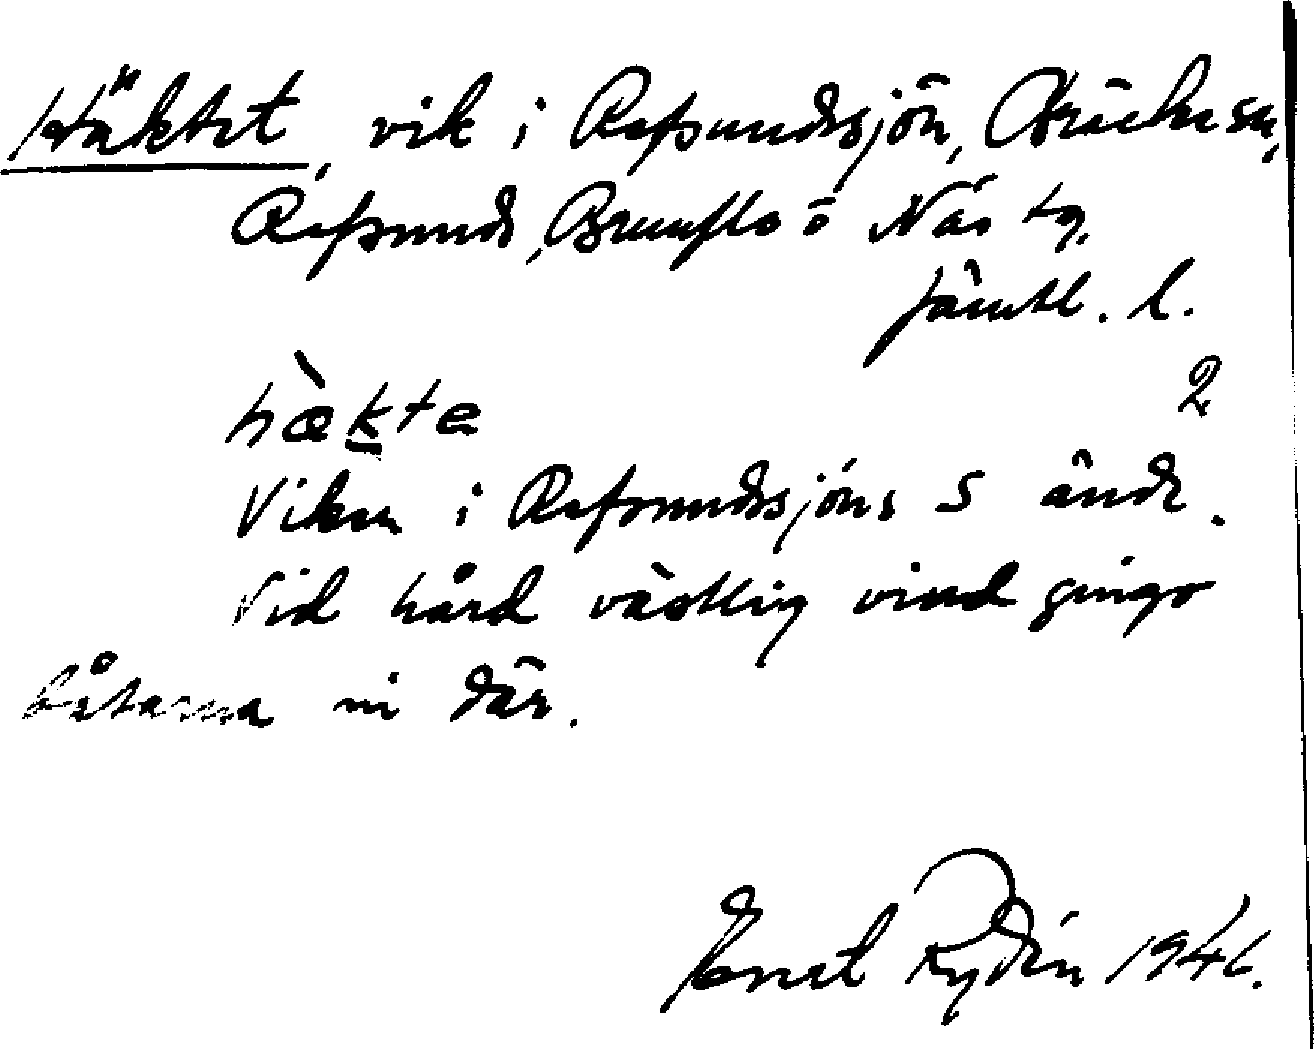 Häktet, vik i Refsundsjön, Bräcke sn,
Refsunds, Brunflo o Näs tg.
Jämtl. l.
hækte 2
Viken i Refsundssjöns S ände.
Vid hård västlig vind gingo
båtarna in där.
Ernst Rydén 1946.